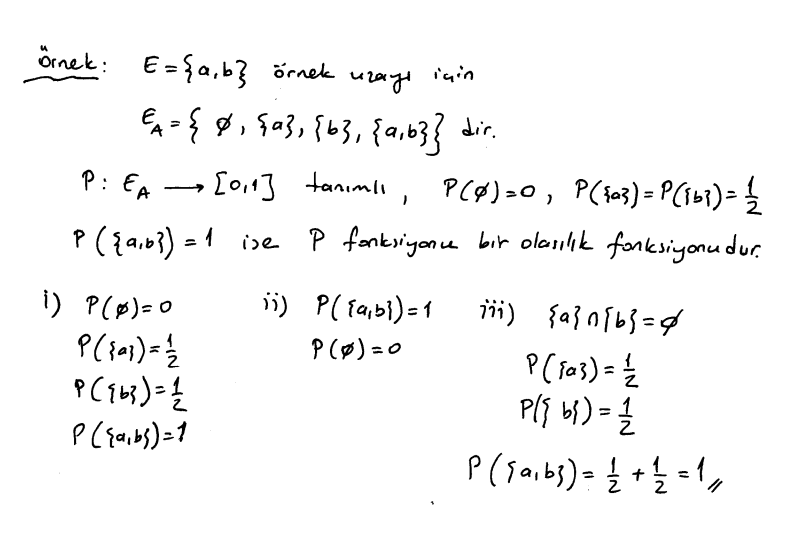 Örnek: E={a,b} örnek uzayı için
E_A={ ∅, {a}, {b}, {a,b}} dir.
P: E_A ⟶ [0,1] tanımlı, P(∅)=0, P({a})=P({b})=1/2
P({a,b})=1 ise P fonksiyonu bir olasılık fonksiyonudur.
i) P(∅)=0
P({a})=1/2
P({b})=1/2
P({a,b})=1
ii) P({a,b})=1
P(∅)=0
iii) {a}∩{b}=∅
P({a})=1/2
P({b})=1/2
P({a,b})=1/2+1/2=1//